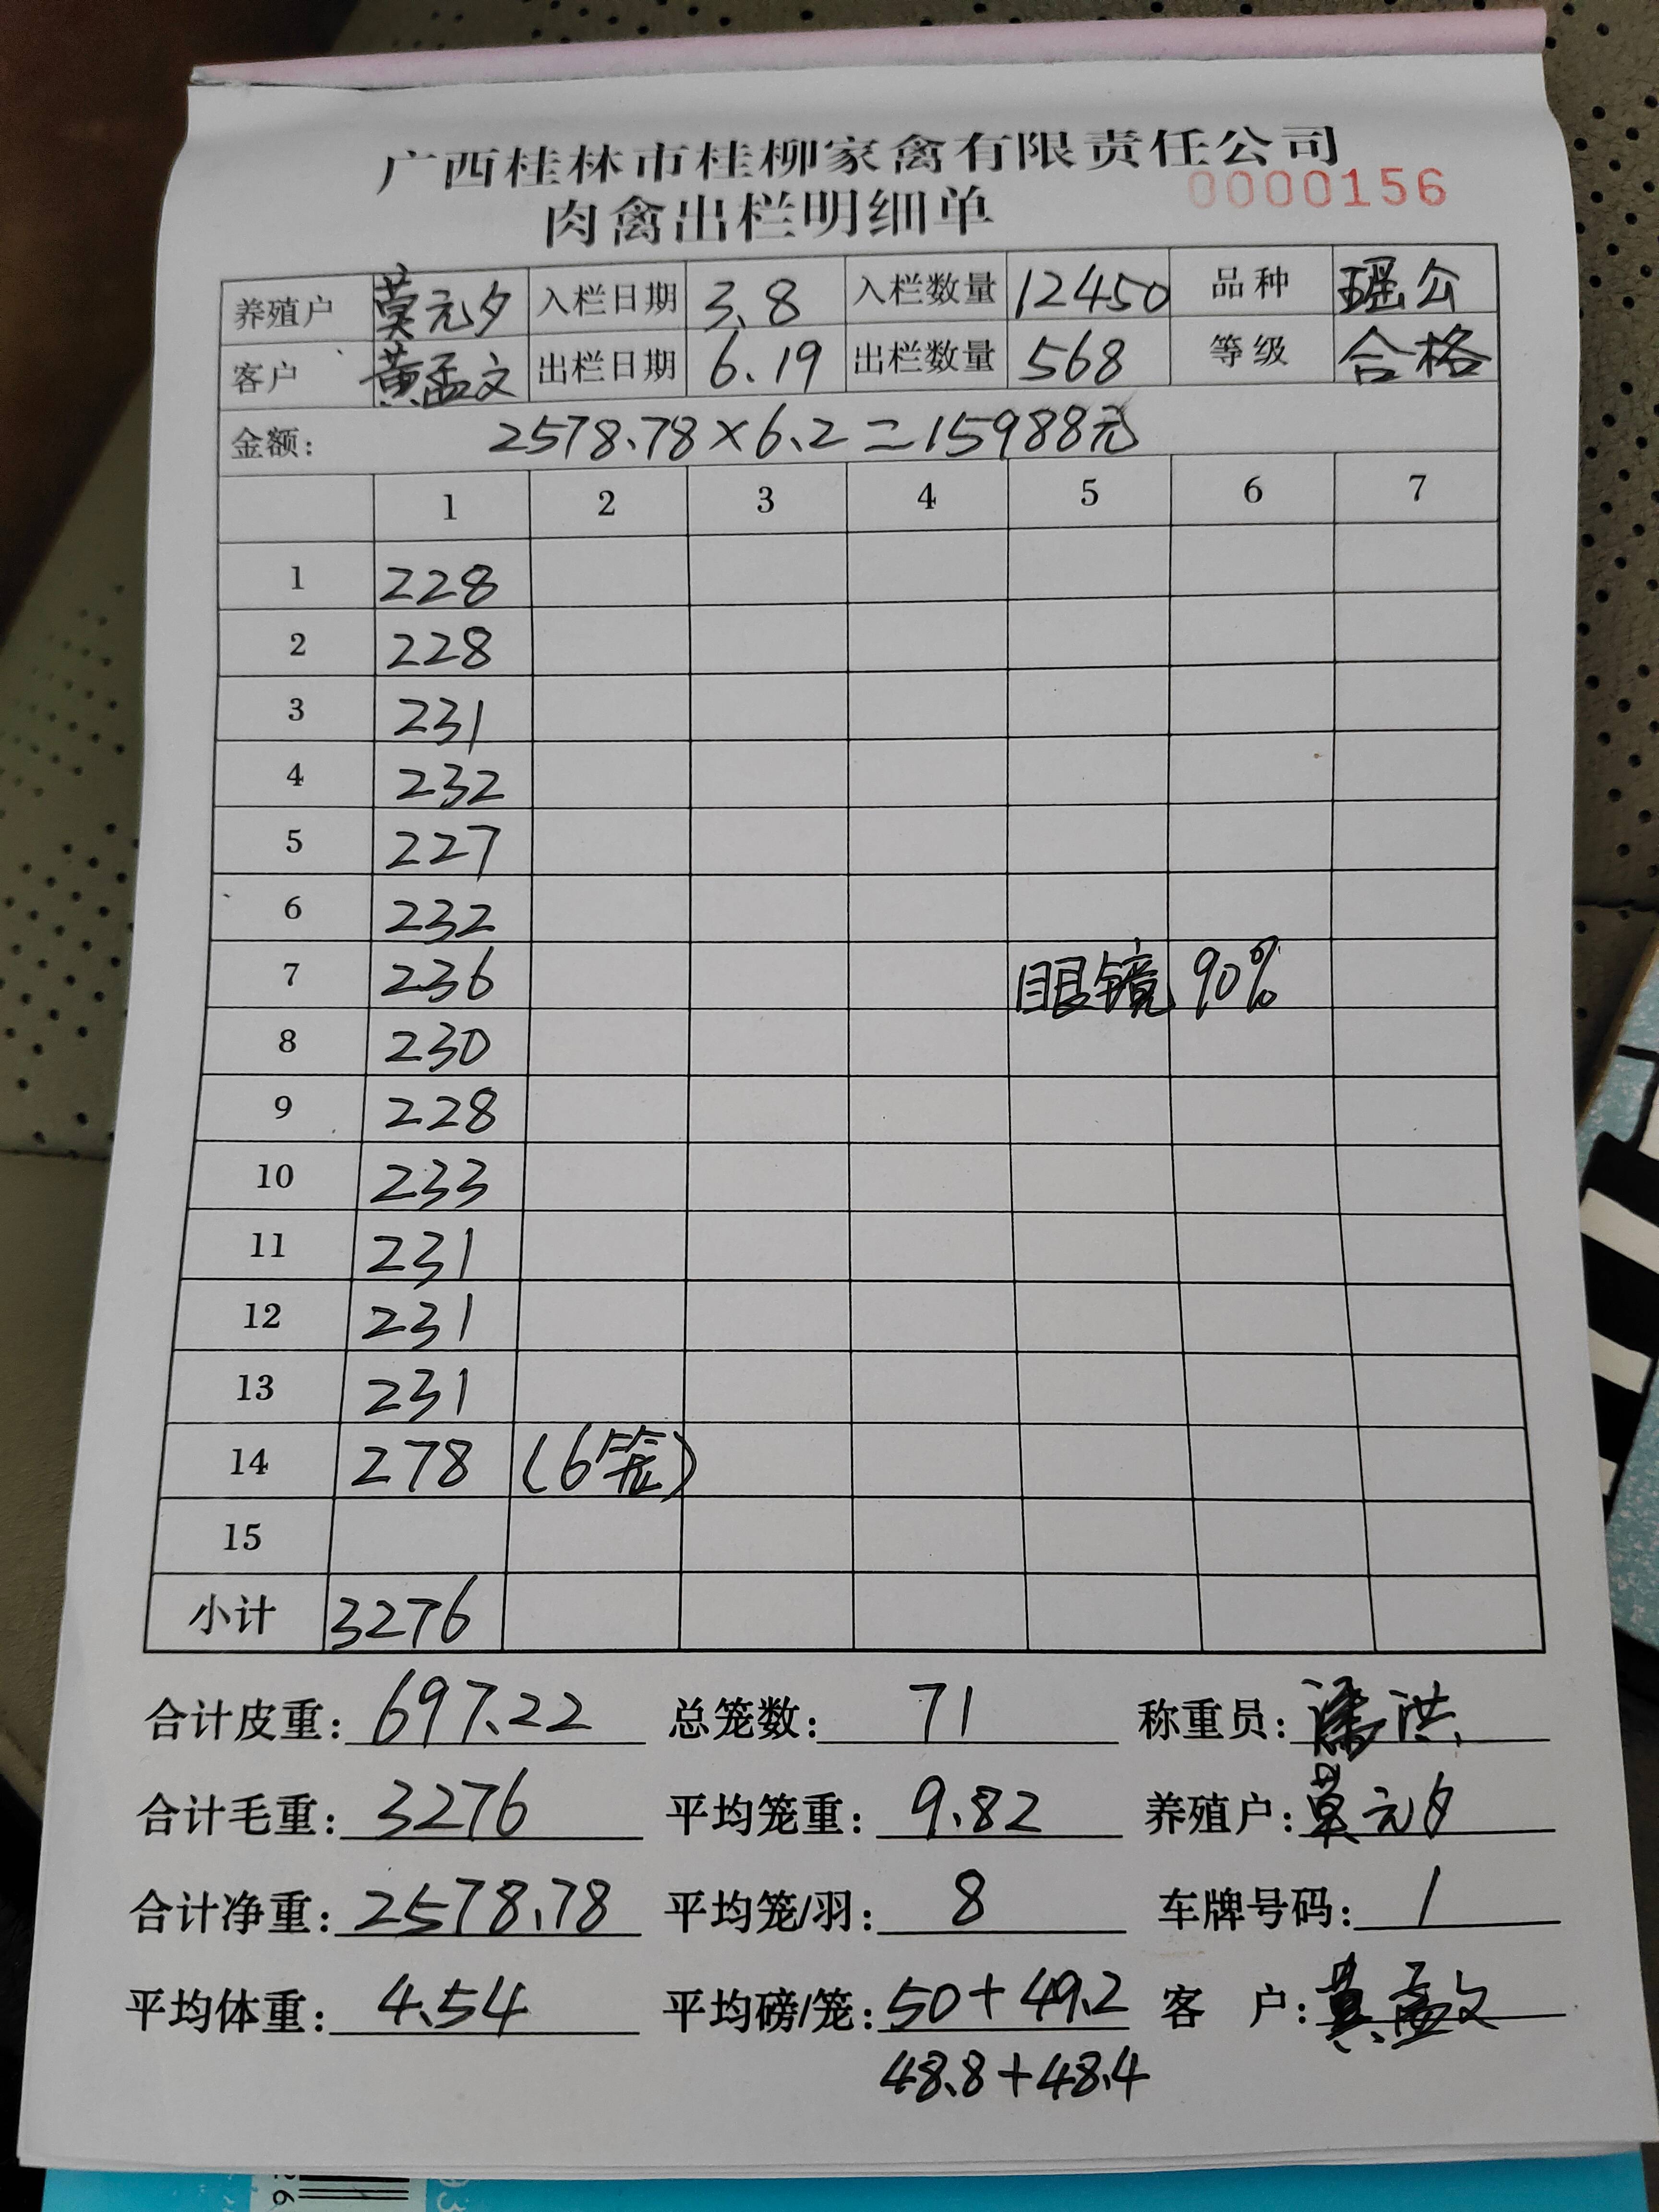 广西桂林市桂柳家禽有限责任公司
肉禽出栏明细单 0000156
养殖户 莫元夕 入栏日期 3.8 入栏数量 12450 品种 瑶公
客户 黄孟文 出栏日期 6.19 出栏数量 568 等级 合格
金额: 2578.78×6.2=15988元
1 2 3 4 5 6 7
1 228
2 228
3 231
4 232
5 227
6 232
7 236 眼镜 90%
8 230
9 228
10 233
11 231
12 231
13 231
14 278 (6笼)
15
小计 3276
合计皮重: 697.22 总笼数: 71 称重员: 潘洪
合计毛重: 3276 平均笼重: 9.82 养殖户: 莫元夕
合计净重: 2578.78 平均笼/羽: 8 车牌号码: 1
平均体重: 4.54 平均磅/笼: 50+49.2 客 户: 黄孟文
48.8+48.4